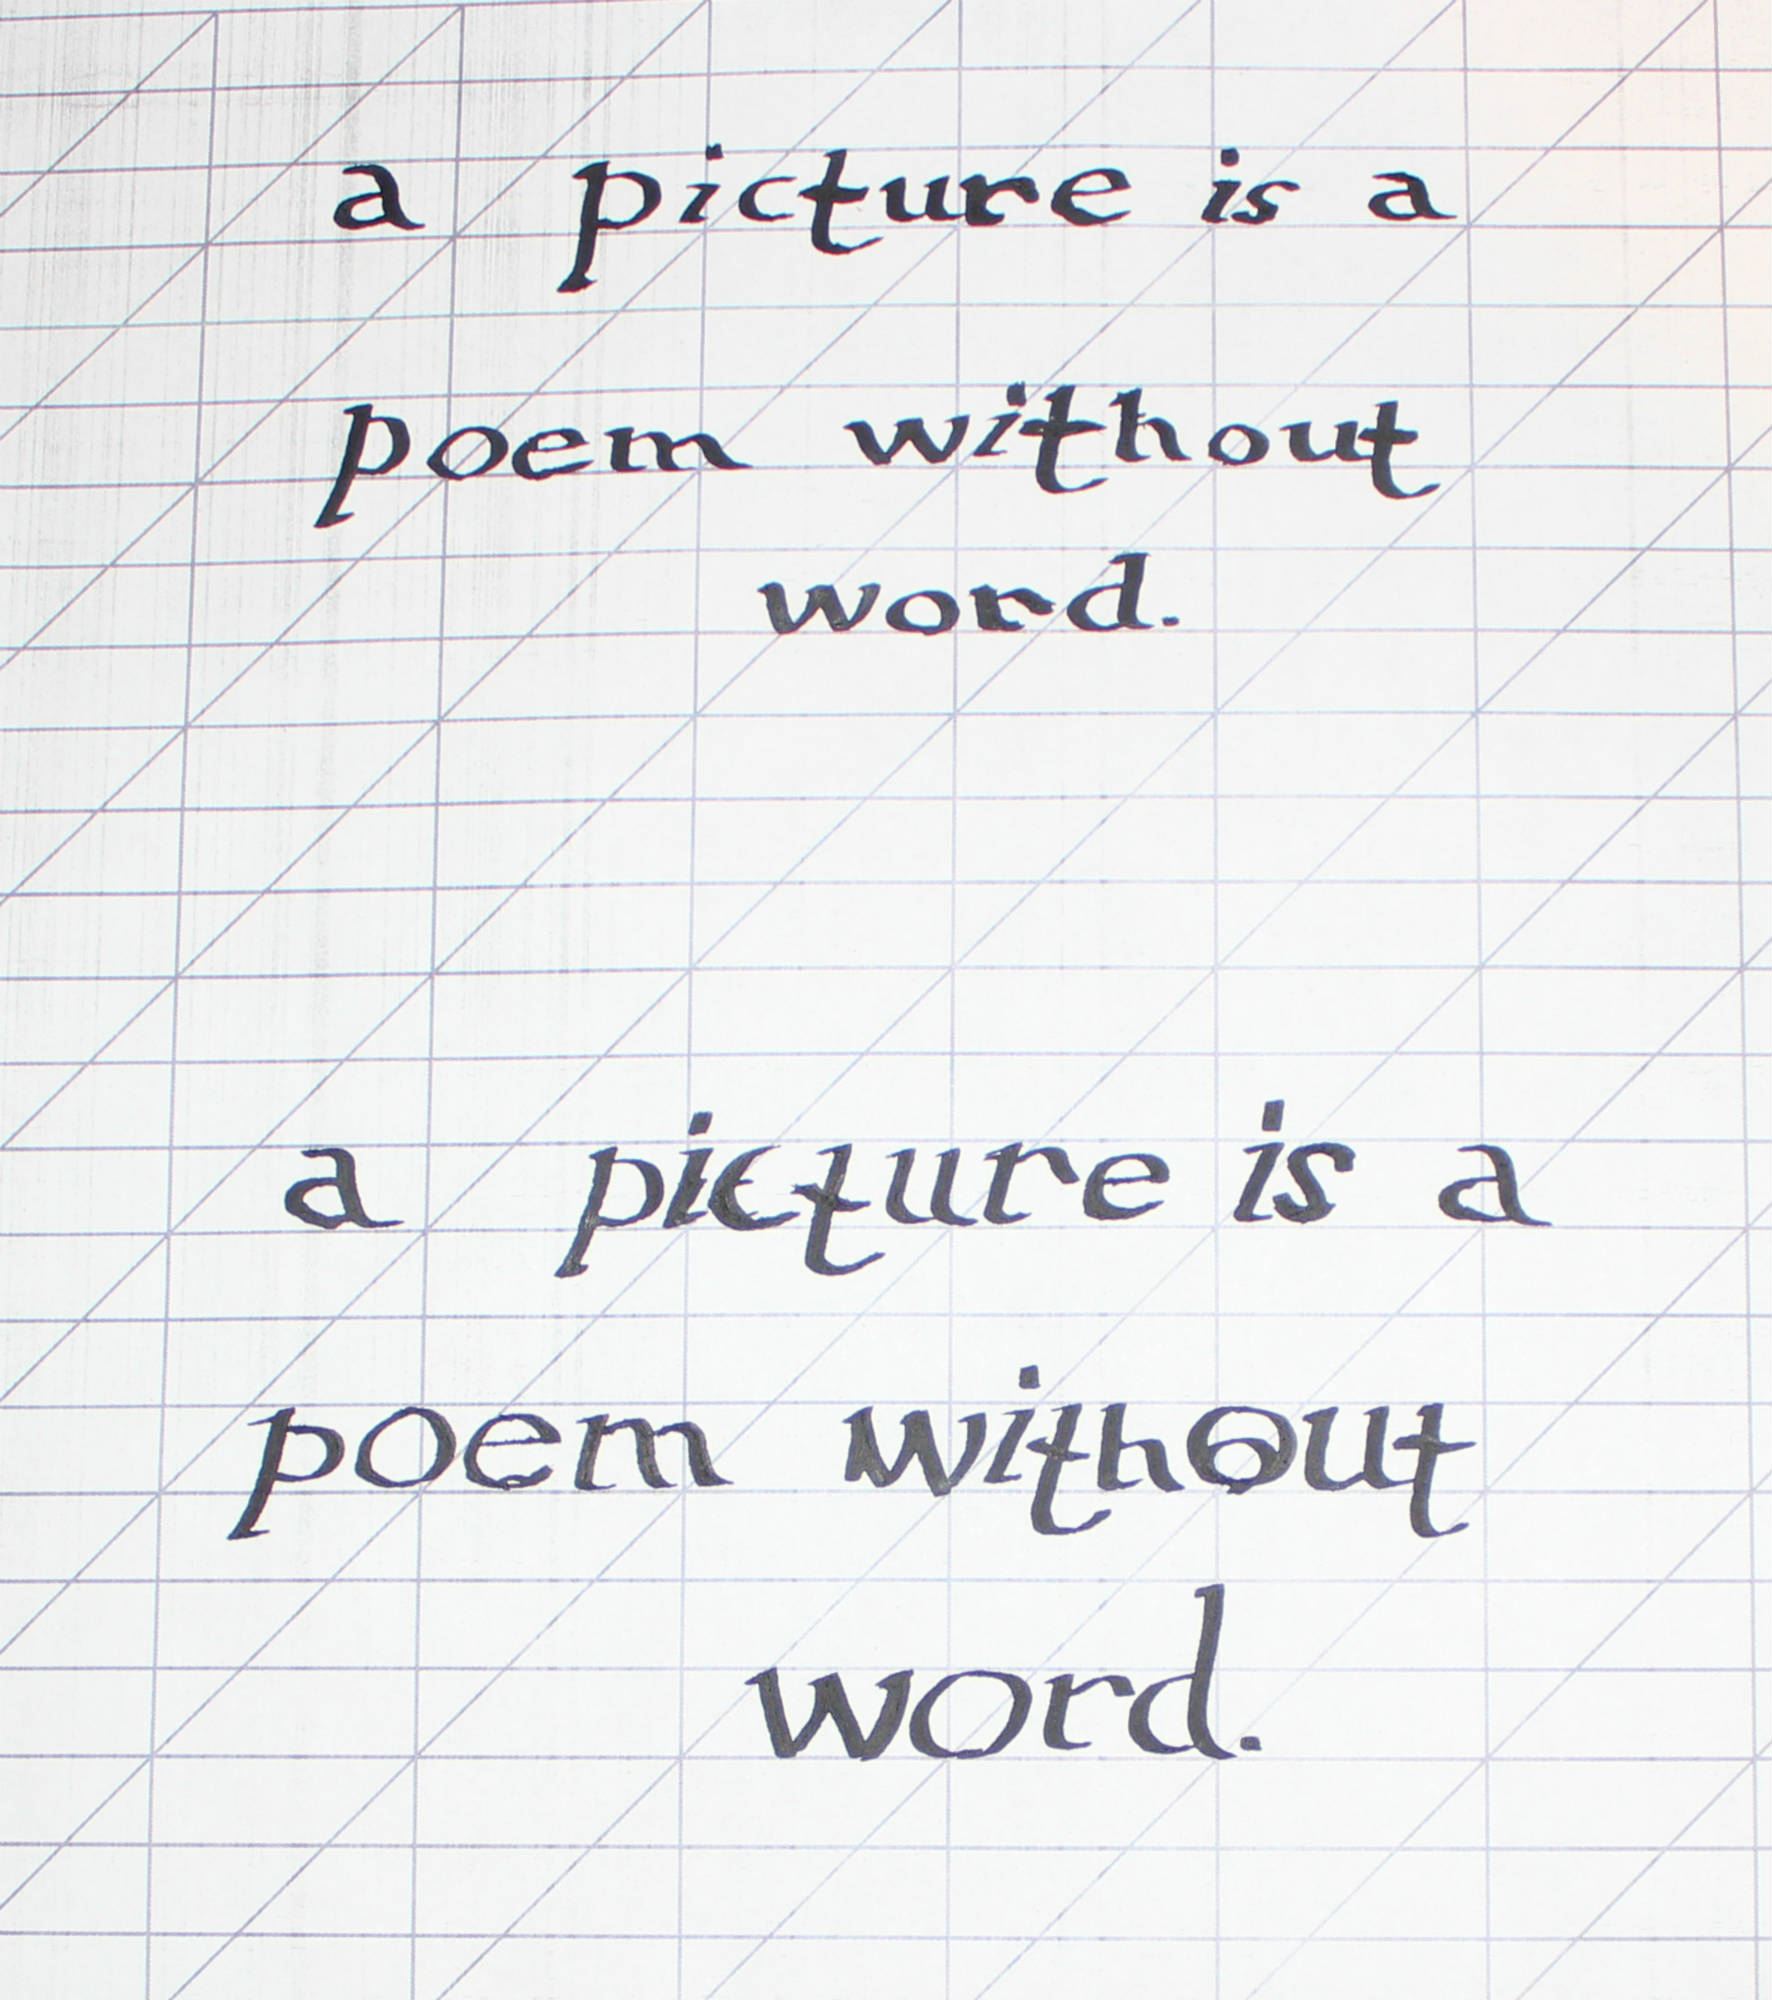 a picture is a
poem without
word.
a picture is a
poem without
word.